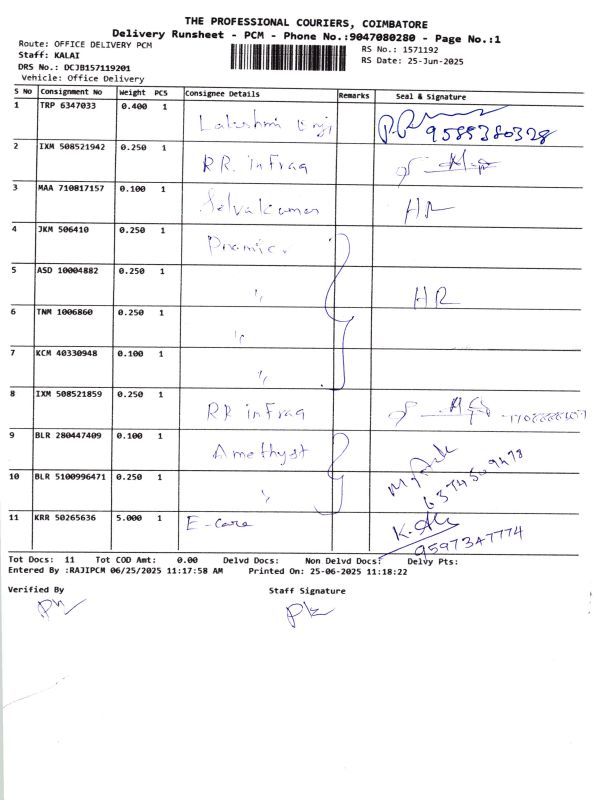 THE PROFESSIONAL COURIERS, COIMBATORE
Delivery Runsheet - PCM - Phone No.:9047080280 - Page No.:1
Route: OFFICE DELIVERY PCM
RS No.: 1571192
Staff: KALAI
RS Date: 25-Jun-2025
DRS No.: DCJB157119201
Vehicle: Office Delivery
S NO Consignment No Weight PCS Consignee Details Remarks Seal & Signature
1 TRP 6347033 0.400 1 Lakshmi 9585380328
2 IXM 508521942 0.250 1 RR infraa
3 MAA 710817157 0.100 1 Selvakumar HR
4 JKM 506410 0.250 1
5 ASD 10004882 0.250 1 " HR
6 TNM 1006860 0.250 1 "
7 KCM 40330948 0.100 1 "
8 IXM 508521859 0.250 1 RR infraa
9 BLR 280447409 0.100 1 Amethyst
10 BLR 5100996471 0.250 1 " 6374509478
11 KRR 50265636 5.000 1 E-care 9597347774
Tot Docs: 11 Tot COD Amt: 0.00 Delvd Docs: Non Delvd Docs: Delvy Pts:
Entered By :RAJIPCM 06/25/2025 11:17:58 AM Printed On: 25-06-2025 11:18:22
Verified By Staff Signature